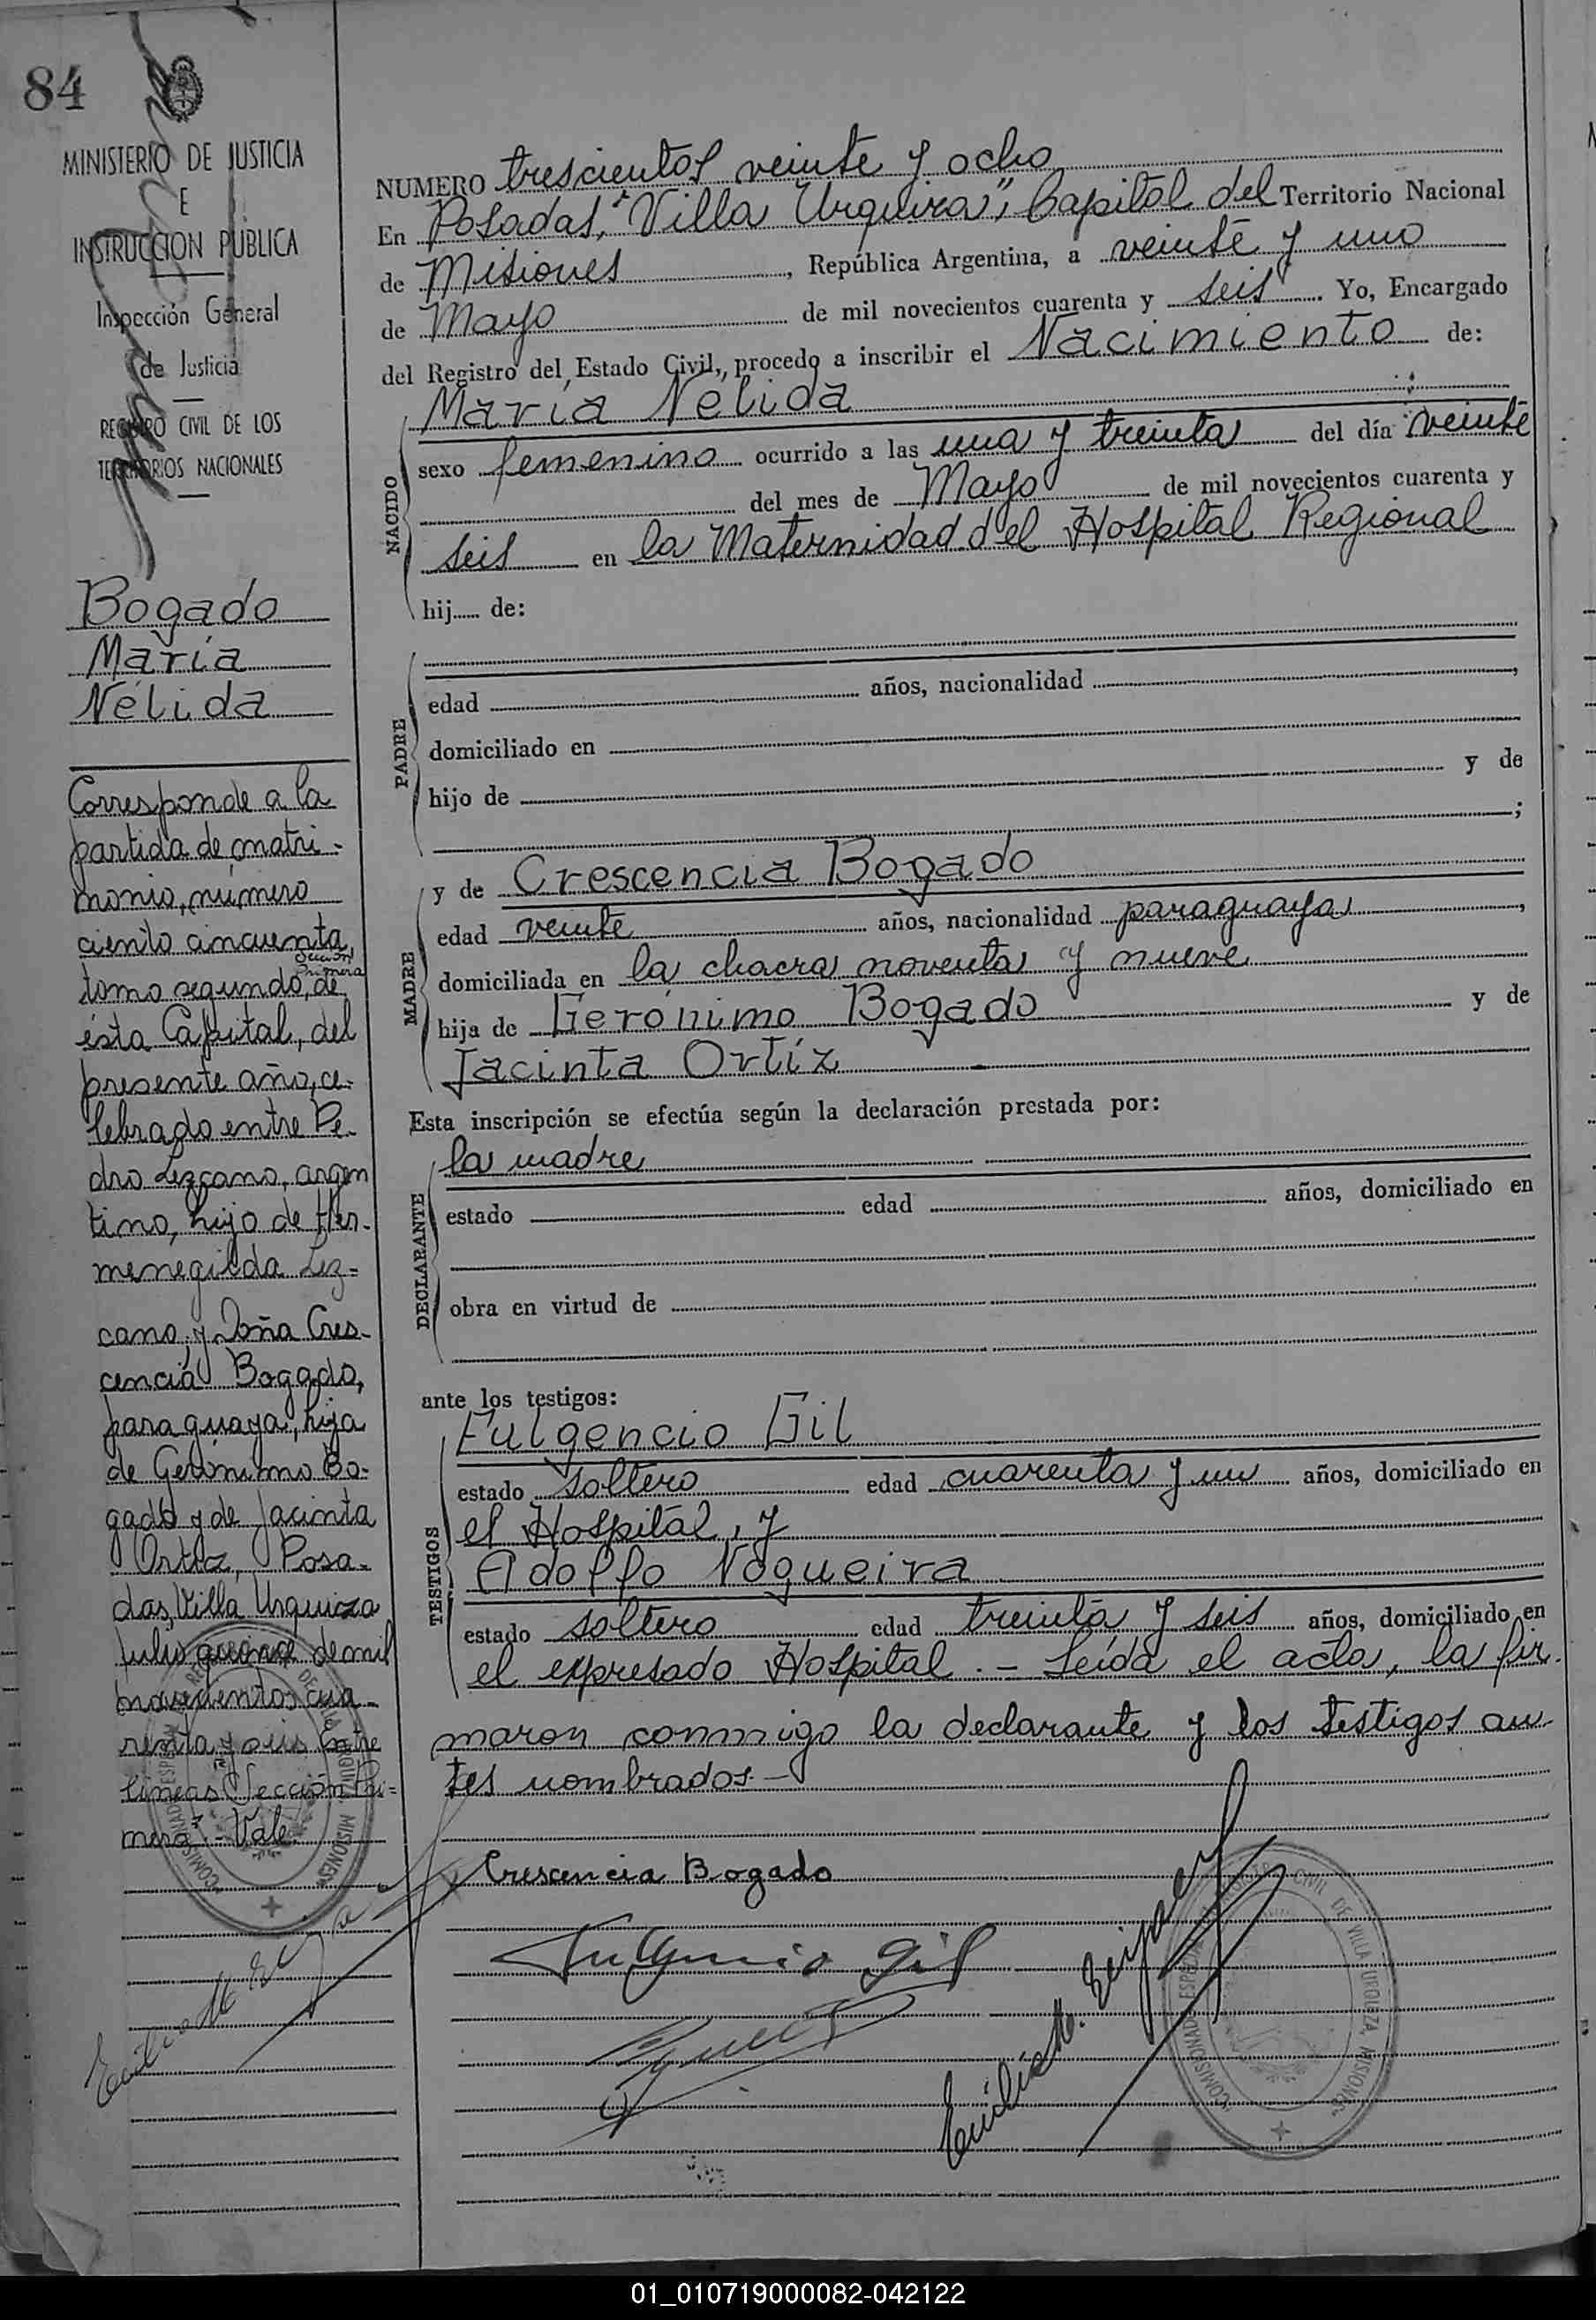 84
MINISTERIO DE JUSTICIA
E
INSTRUCCION PÚBLICA
Inspección General
de Justicia
REGISTRO CIVIL DE LOS
TERRITORIOS NACIONALES
Bogado
María
Nélida
Corresponde a la
partida de matri-
monio, número
ciento cincuenta,
Sección
Primera
tomo segundo, de
ésta Capital, del
presente año, ce-
lebrado entre Pe-
dro Lezcano, argen
tino, hijo de Her-
menegilda Lez-
cano, y Doña Cres-
cencia Bogado,
paraguaya, hija
de Gerónimo Bo-
gado y de Jacinta
Ortiz, Posa-
das, Villa Urquiza
Julio quince de mil
novecientos cua-
renta y seis. Entre
lineas "Sección Pri-
mera".- Vale.
NUMERO trescientos veinte y ocho
En Posadas, "Villa Urquiza", Capital del Territorio Nacional
de Misiones, República Argentina, a veinte y uno
de Mayo de mil novecientos cuarenta y seis. Yo, Encargado
del Registro del Estado Civil, procedo a inscribir el Nacimiento de:
NACIDO
María Nélida
sexo femenino ocurrido a las una y treinta del día veinte
del mes de Mayo de mil novecientos cuarenta y
seis en la Maternidad del Hospital Regional
hij de:
PADRE
edad años, nacionalidad ,
domiciliado en
hijo de y de
;
MADRE
y de Crescencia Bogado
edad veinte años, nacionalidad paraguaya,
domiciliada en la chacra noventa y nueve
hija de Gerónimo Bogado y de
Jacinta Ortíz
Esta inscripción se efectúa según la declaración prestada por:
DECLARANTE
la madre
estado edad años, domiciliado en
obra en virtud de
ante los testigos:
TESTIGOS
Fulgencio Gil
estado soltero edad cuarenta y un años, domiciliado en
el Hospital, y
Adolfo Nogueira
estado soltero edad treinta y seis años, domiciliado en
el expresado Hospital.- Leída el acta, la fir-
maron conmigo la declarante y los testigos an-
tes nombrados.-
Crescencia Bogado
Fulgencio Gil
01_010719000082-042122